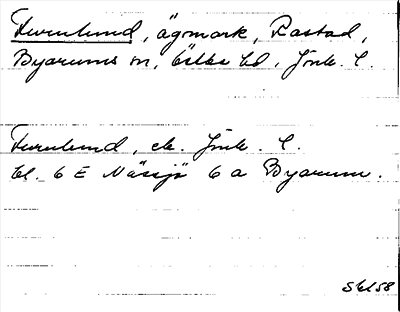 Furulund, ägmark, Rastad,
Byarums sn, Östbo hd, Jönk. l.
Furulund, ek. Jönk. l.
bl. 6 E Nässjö 6 a Byarum.